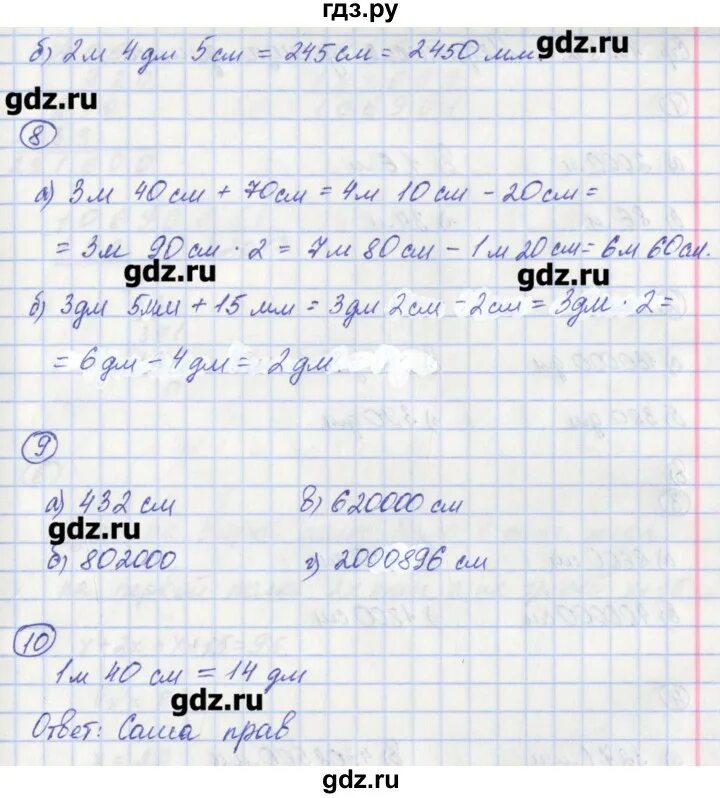 гдз.ру
б) 2м 4дм 5см = 245см = 2450 мм
gdz.ru
gdz.ru
8
а) 3м 40см + 70см = 4м 10см - 20см =
= 3м 90см · 2 = 7м 80см - 1м 20см = 6м 60см.
gdz.ru
gdz.ru
б) 3дм 5мм + 15мм = 3дм 2см - 2см = 3дм · 2 =
= 6дм - 4дм = 2дм.
9
а) 432 см в) 620000 см
gdz.ru
б) 802000 г) 2000896 см
10
1м 40 см = 14 дм
gdz.ru
Ответ: Саша прав
gdz.ru